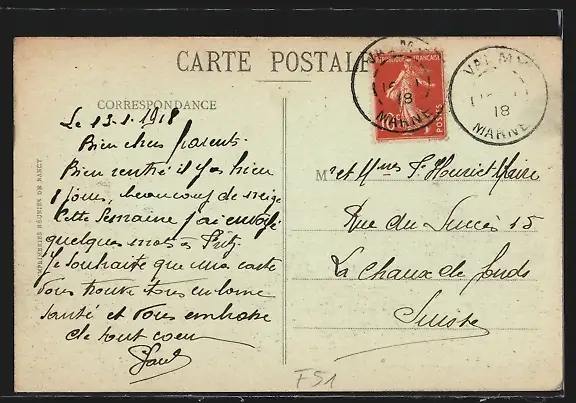 CARTE POSTALE
CORRESPONDANCE
Le 13-1-1918
Bien chers parents.
Bien rentré il y a bien
jours, beaucoup de neige
Cette Semaine j'ai envoyé
quelques mots a Fritz
Je souhaite que ma carte
vous trouve tous en bonne
santé et vous embrasse
de tout coeur
Paul
IMPRIMERIES RÉUNIES DE NANCY
FRANÇAISE
POSTES
VALMY
18
MARNE
VALMY
18
MARNE
Mr et Mmes F. Henriet Maire
Rue du Succès 15
La Chaux de fonds
Suisse
F51